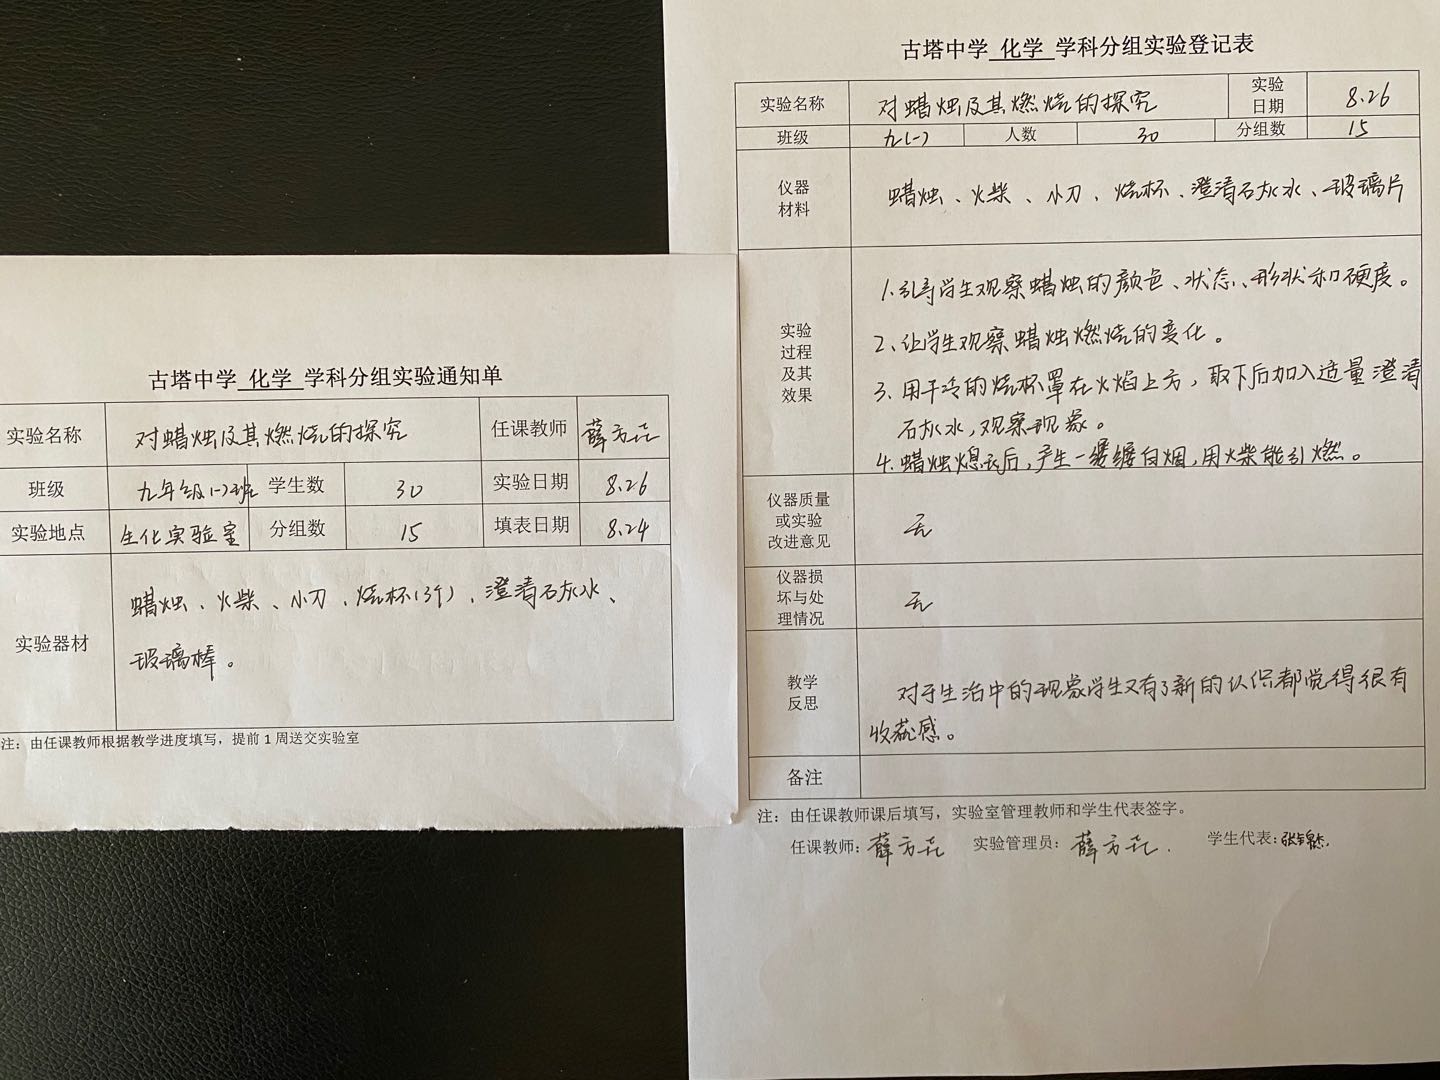 古塔中学 化学 学科分组实验通知单
实验名称 对蜡烛及其燃烧的探究 任课教师 薛方
班级 九年级(一)班 学生数 30 实验日期 8.26
实验地点 生化实验室 分组数 15 填表日期 8.24
实验器材
蜡烛、火柴、小刀、烧杯(3个)、澄清石灰水、
玻璃棒。
注：由任课教师根据教学进度填写，提前1周送交实验室
古塔中学 化学 学科分组实验登记表
实验名称 对蜡烛及其燃烧的探究 实验日期 8.26
班级 九(一) 人数 30 分组数 15
仪器材料
蜡烛、火柴、小刀、烧杯、澄清石灰水、玻璃片
实验过程及其效果
1.引导学生观察蜡烛的颜色、状态、形状和硬度。
2、让学生观察蜡烛燃烧的变化。
3.用干冷的烧杯罩在火焰上方，取下后加入适量澄清
石灰水，观察现象。
4.蜡烛熄灭后，产生一缕缕白烟，用火柴能引燃。
仪器质量或实验改进意见 无
仪器损坏与处理情况 无
教学反思
对于生活中的现象学生又有了新的认识都觉得很有
收获感。
备注
注：由任课教师课后填写，实验室管理教师和学生代表签字。
任课教师：薛方 实验管理员：薛方 学生代表：张